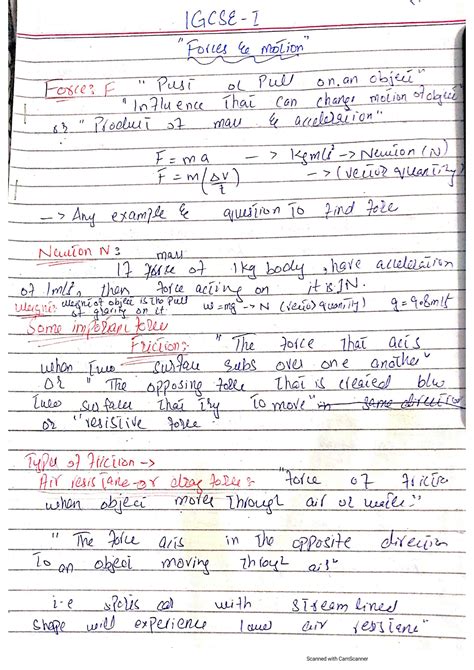 IGCSE-I
"Forces & motion"
Force: F "Pust or Pull on an object"
"Influence That can change motion of object
or "Product of mass & acceleration"
F = ma -> Kgm/s² -> Newton (N)
F = m(Δv/t) -> (vector quantity)
-> Any example & question To find force
Newton N: mass
If force of 1kg body, have acceleration
of 1m/s², then force acting on it is 1N.
Weight: weight of object is the pull
of gravity on it w = mg -> N (vector quantity) g = 9.8m/s²
Some important force
Friction: "The force that acts
when two surface rubs over one another"
or "The opposing force That is created b/w
two surfaces that try To move" in same direction
or "resistive force"
Types of Friction ->
Air resistance or drag force: "force of friction
when object moves through air or water"
"The force acts in The opposite direction
To an object moving through air"
i-e sports car with streamlined
shape will experience lower air resistance"
Scanned with CamScanner